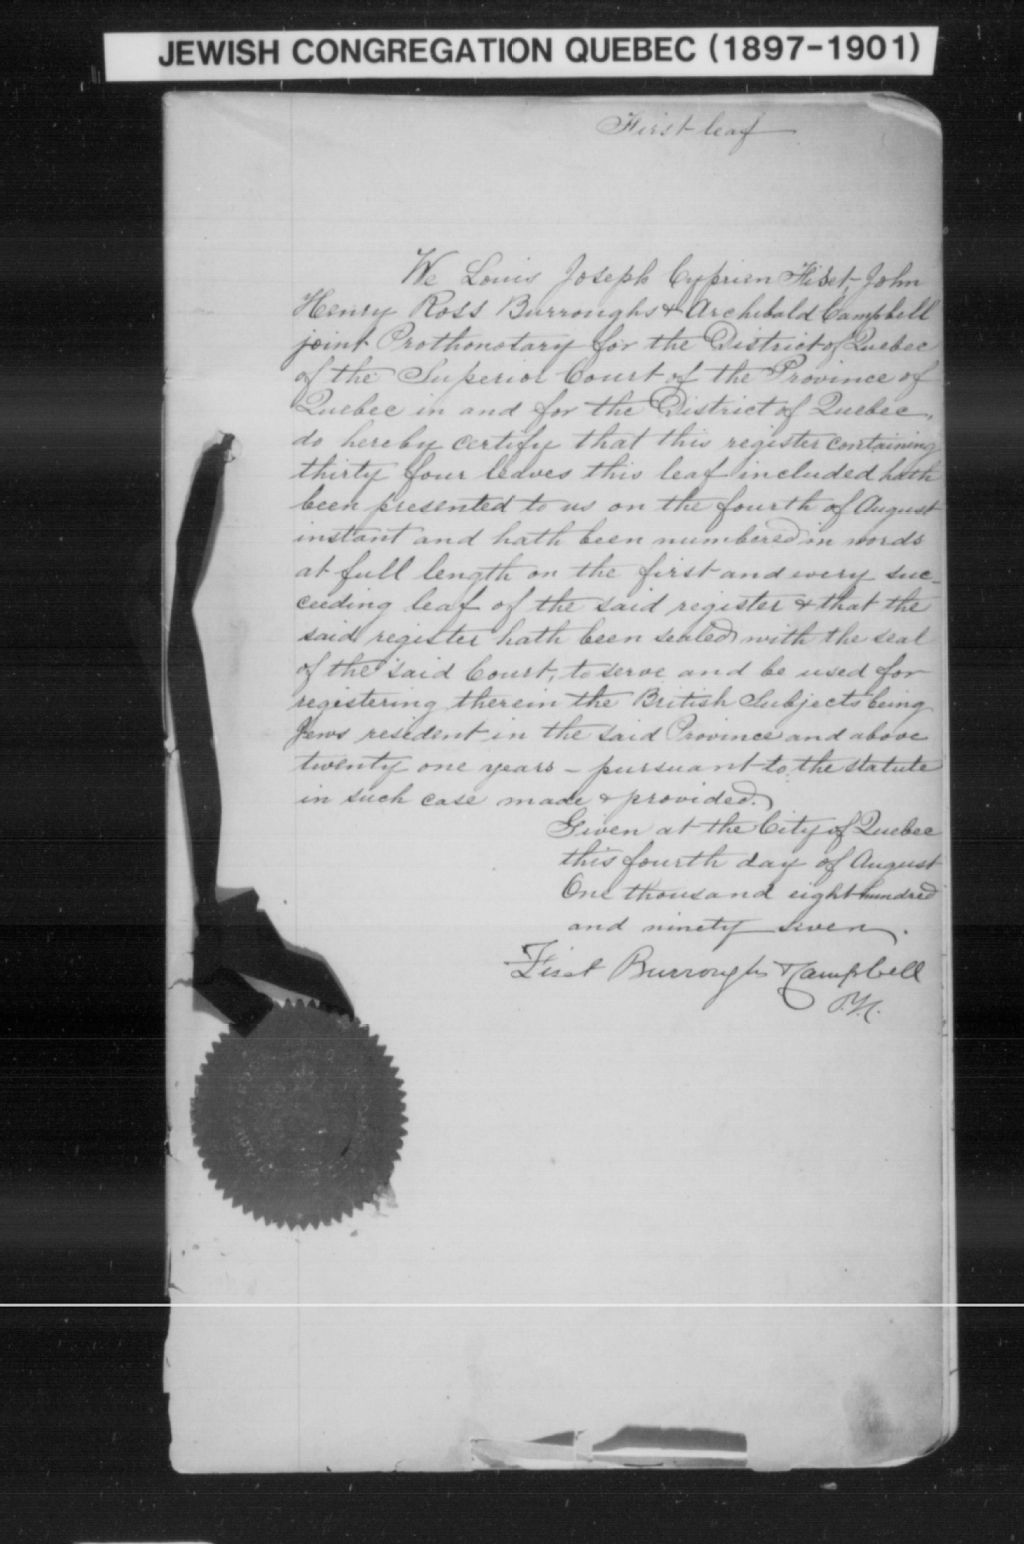 JEWISH CONGREGATION QUEBEC (1897-1901)
First leaf
We Louis Joseph Cyprien Fiset, John
Henry Ross Burroughs & Archibald Campbell
joint Prothonotary for the District of Quebec
of the Superior Court of the Province of
Quebec in and for the District of Quebec,
do hereby certify that this register containing
thirty four leaves this leaf included hath
been presented to us on the fourth of August
instant and hath been numbered in words
at full length on the first and every suc-
ceeding leaf of the said register & that the
said register hath been sealed with the seal
of the said Court, to serve and be used for
registering therein the British Subjects being
Jews resident in the said Province and above
twenty one years - pursuant to the statute
in such case made & provided.
Given at the City of Quebec
this fourth day of August
One thousand eight hundred
and ninety seven.
Fiset Burroughs & Campbell